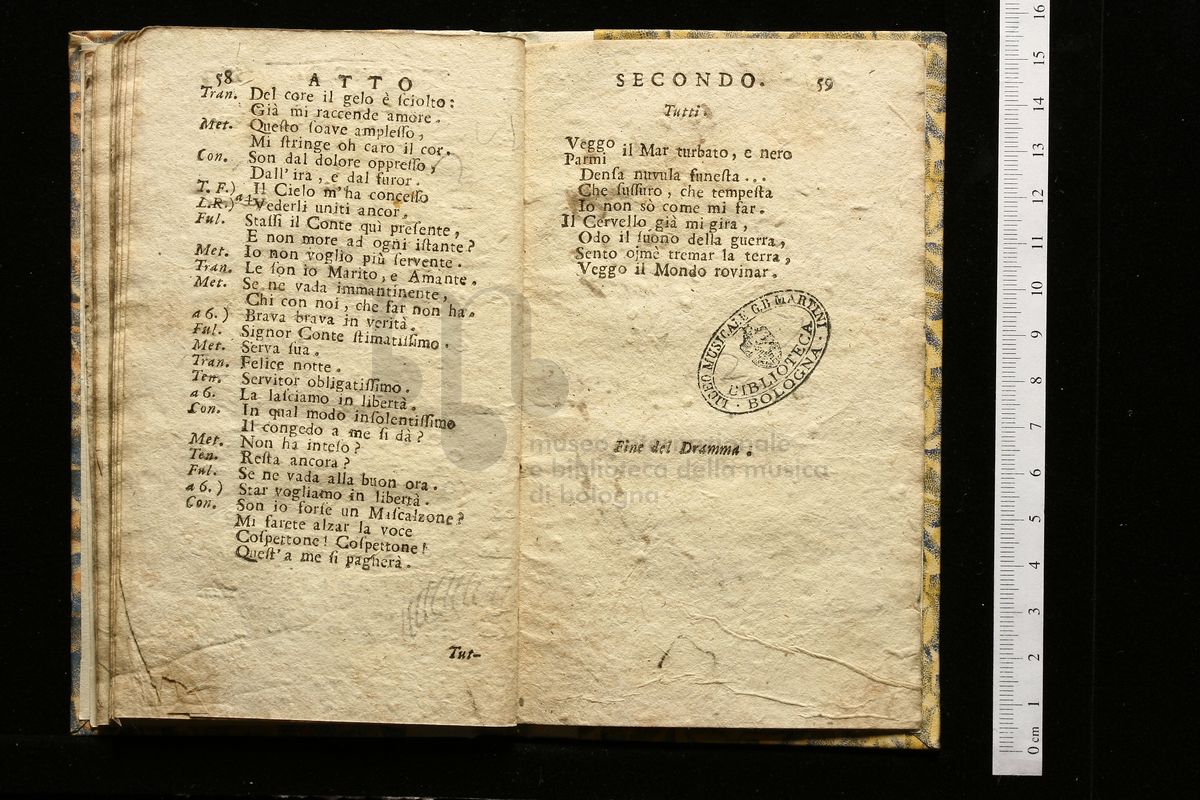 58 ATTO
Tran. Del core il gelo è ſciolto:
Già mi raccende amore.
Met. Queſto ſoave ampleſſo,
Mi ſtringe oh caro il cor.
Con. Son dal dolore oppreſſo,
Dall' ira, e dal furor.
T. F.) Il Cielo m'ha conceſſo
L.R.) a 2 Vederli uniti ancor,
Ful. Staſſi il Conte quì preſente,
E non more ad ogni iſtante?
Met. Io non voglio più ſervente.
Tran. Le ſon io Marito, e Amante.
Met. Se ne vada immantinente,
Chi con noi, che far non ha.
a 6.) Brava brava in verità.
Ful. Signor Conte ſtimatiſſimo.
Met. Serva ſua.
Tran. Felice notte.
Ten. Servitor obligatiſſimo.
a 6. La laſciamo in libertà.
Con. In qual modo inſolentiſſimo
Il congedo a me ſi dà?
Met. Non ha inteſo?
Ten. Reſta ancora?
Ful. Se ne vada alla buon ora.
a 6.) Star vogliamo in libertà.
Con. Son io forſe un Miſcalzone?
Mi farete alzar la voce
Coſpettone! Coſpettone!
Queſt' a me ſi pagherà.
Tut-
SECONDO. 59
Tutti.
Veggo
Parmi il Mar turbato, e nero
Denſa nuvula funeſta ...
Che ſuſſuro, che tempeſta
Io non sò come mi far.
Il Cervello già mi gira,
Odo il ſuono della guerra,
Sento oimè tremar la terra,
Veggo il Mondo rovinar.
LICEO MUSICALE G.B. MARTINI
BIBLIOTECA
BOLOGNA
Fine del Dramma.
museo internazionale
e biblioteca della musica
di bologna
0 cm 1 2 3 4 5 6 7 8 9 10 11 12 13 14 15 16